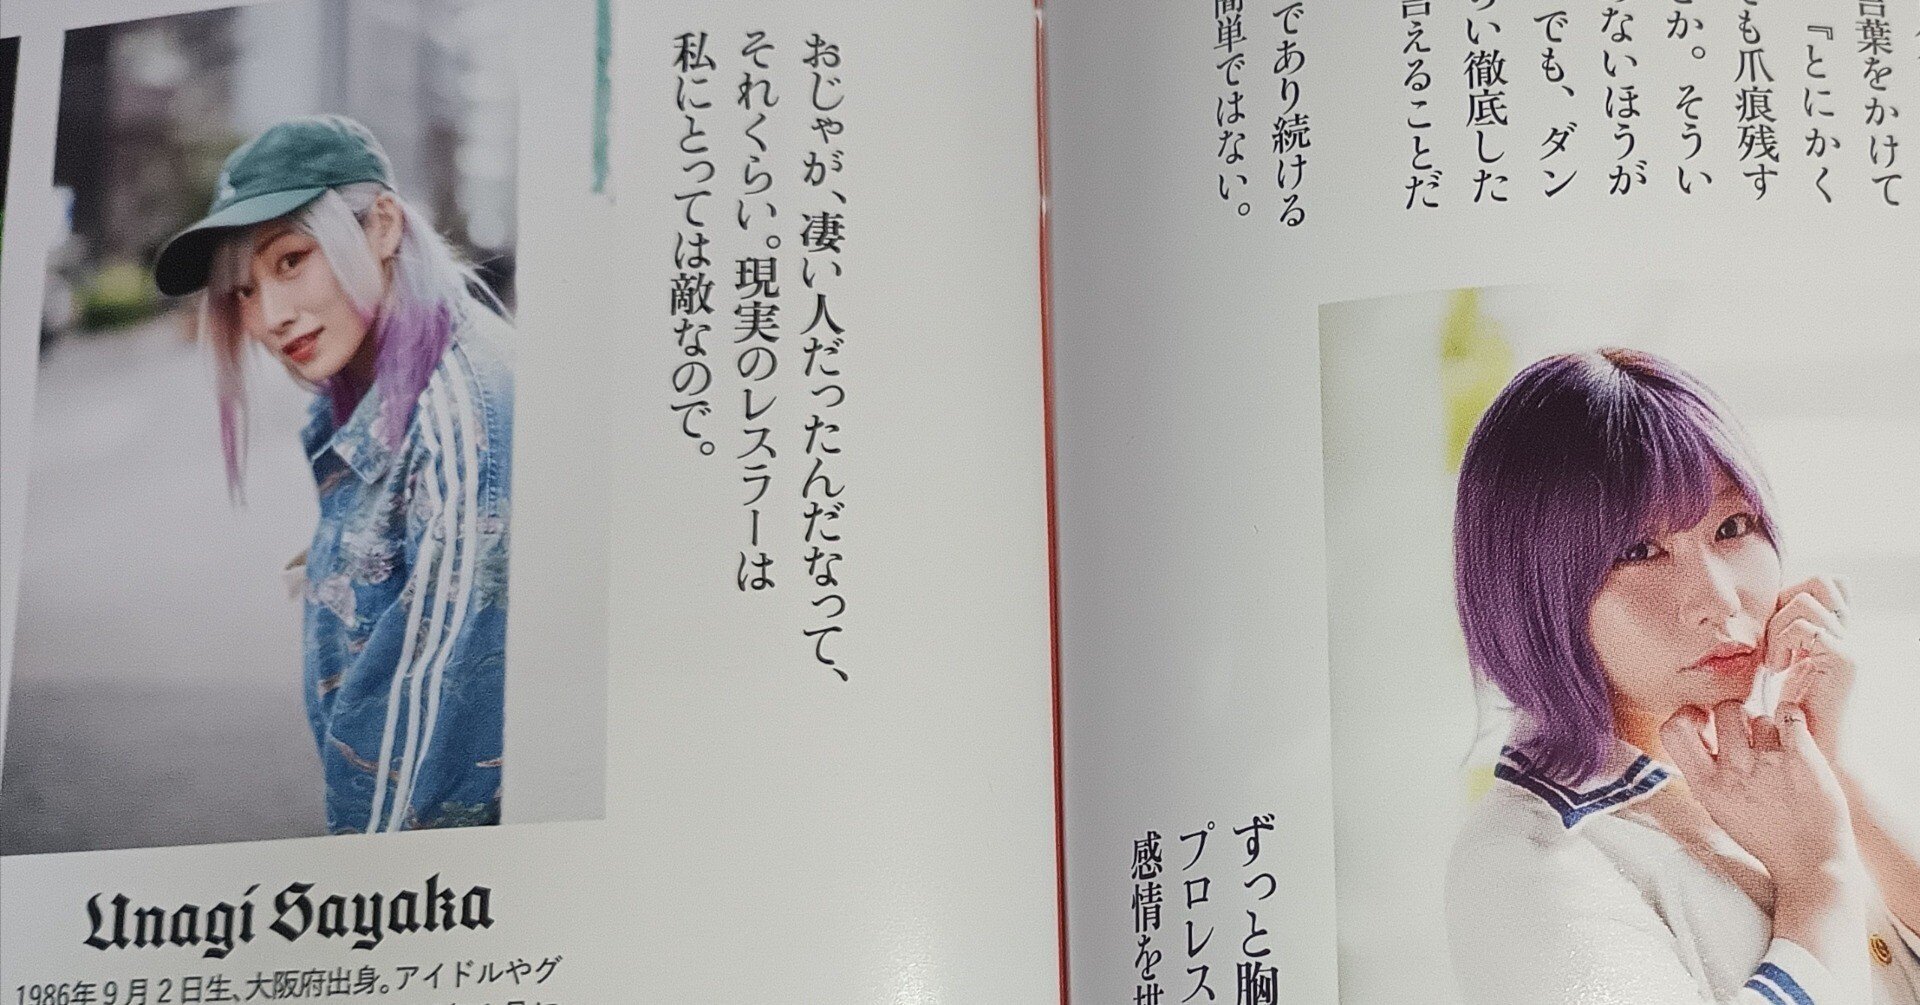 言葉をかけて
『とにかく
も爪痕残す
か。そうい
ないほうが
でも、ダン
い徹底した
言えることだ
であり続ける
簡単ではない。
ずっと胸
プロレス
感情を
おじゃが、凄い人だったんだなって、
それくらい。現実のレスラーは
私にとっては敵なので。
Unagi Sayaka
1986年9月2日生、大阪府出身。アイドルやグ